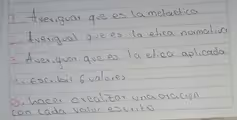 1 Averiguar que es la moloctica
2 Averigual que es la etica normativa
3 Averiguar que es la etica aplicada
4. escribir 6 valores
5. hacer o realizar una oracion
con cada valor escrito